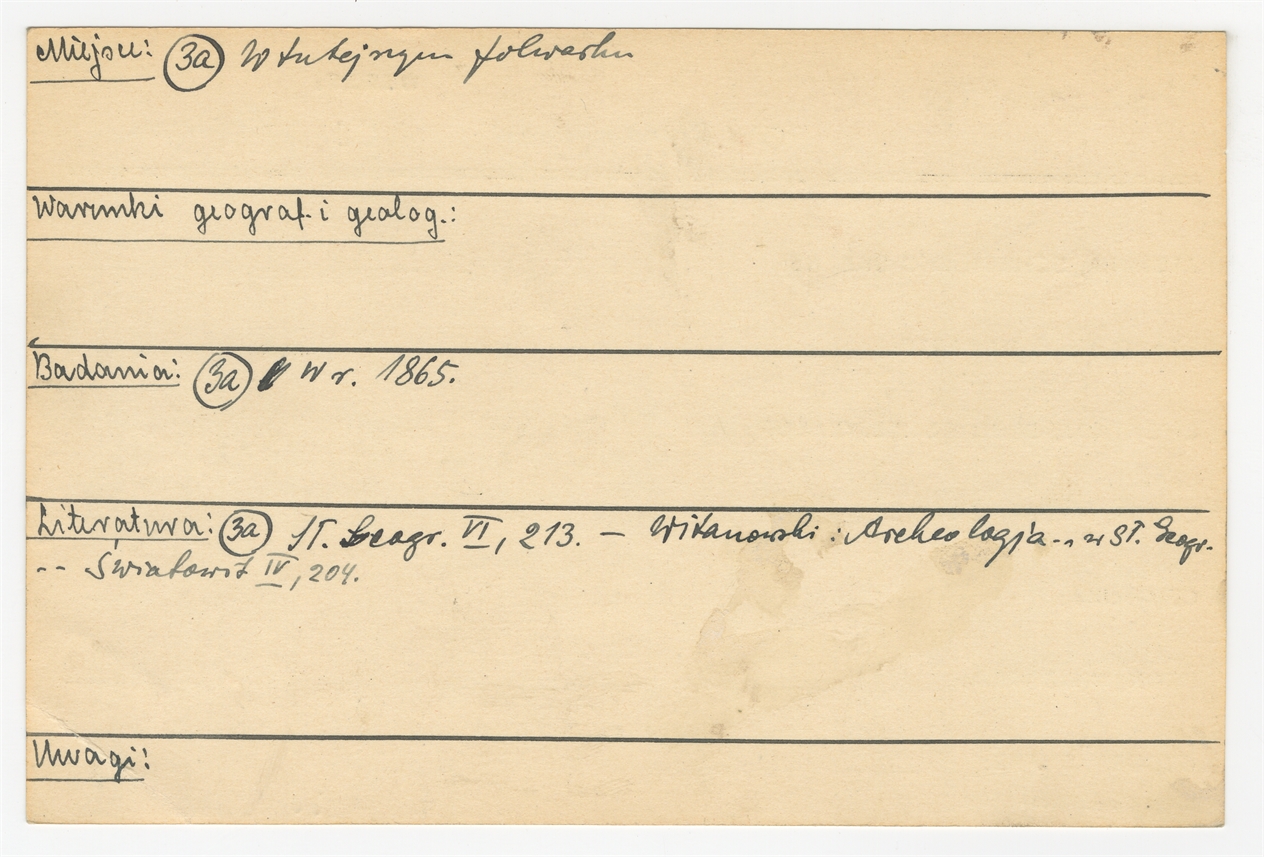 Miejsce: (3a) W tutejszym folwarku
Warunki geograf. i geolog.:
Badania: (3a) W r. 1865.
Literatura: (3a) Sł. Geogr. VI, 213. — Witanowski: Archeologja... w Sł. Geogr.
-- Światowit IV, 204.
Uwagi: